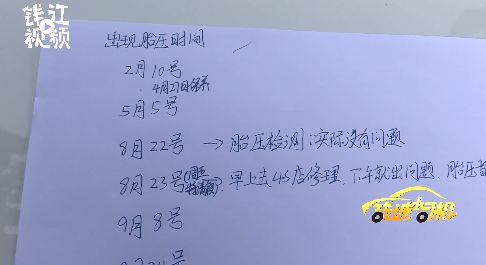 钱江视频
出现胎压时间
2月10号
4月21日保养
5月5号
8月22号 → 胎压检测:实际没有问题
8月23号 → 早上去4S店修理,下午就出问题,胎压
9月8号